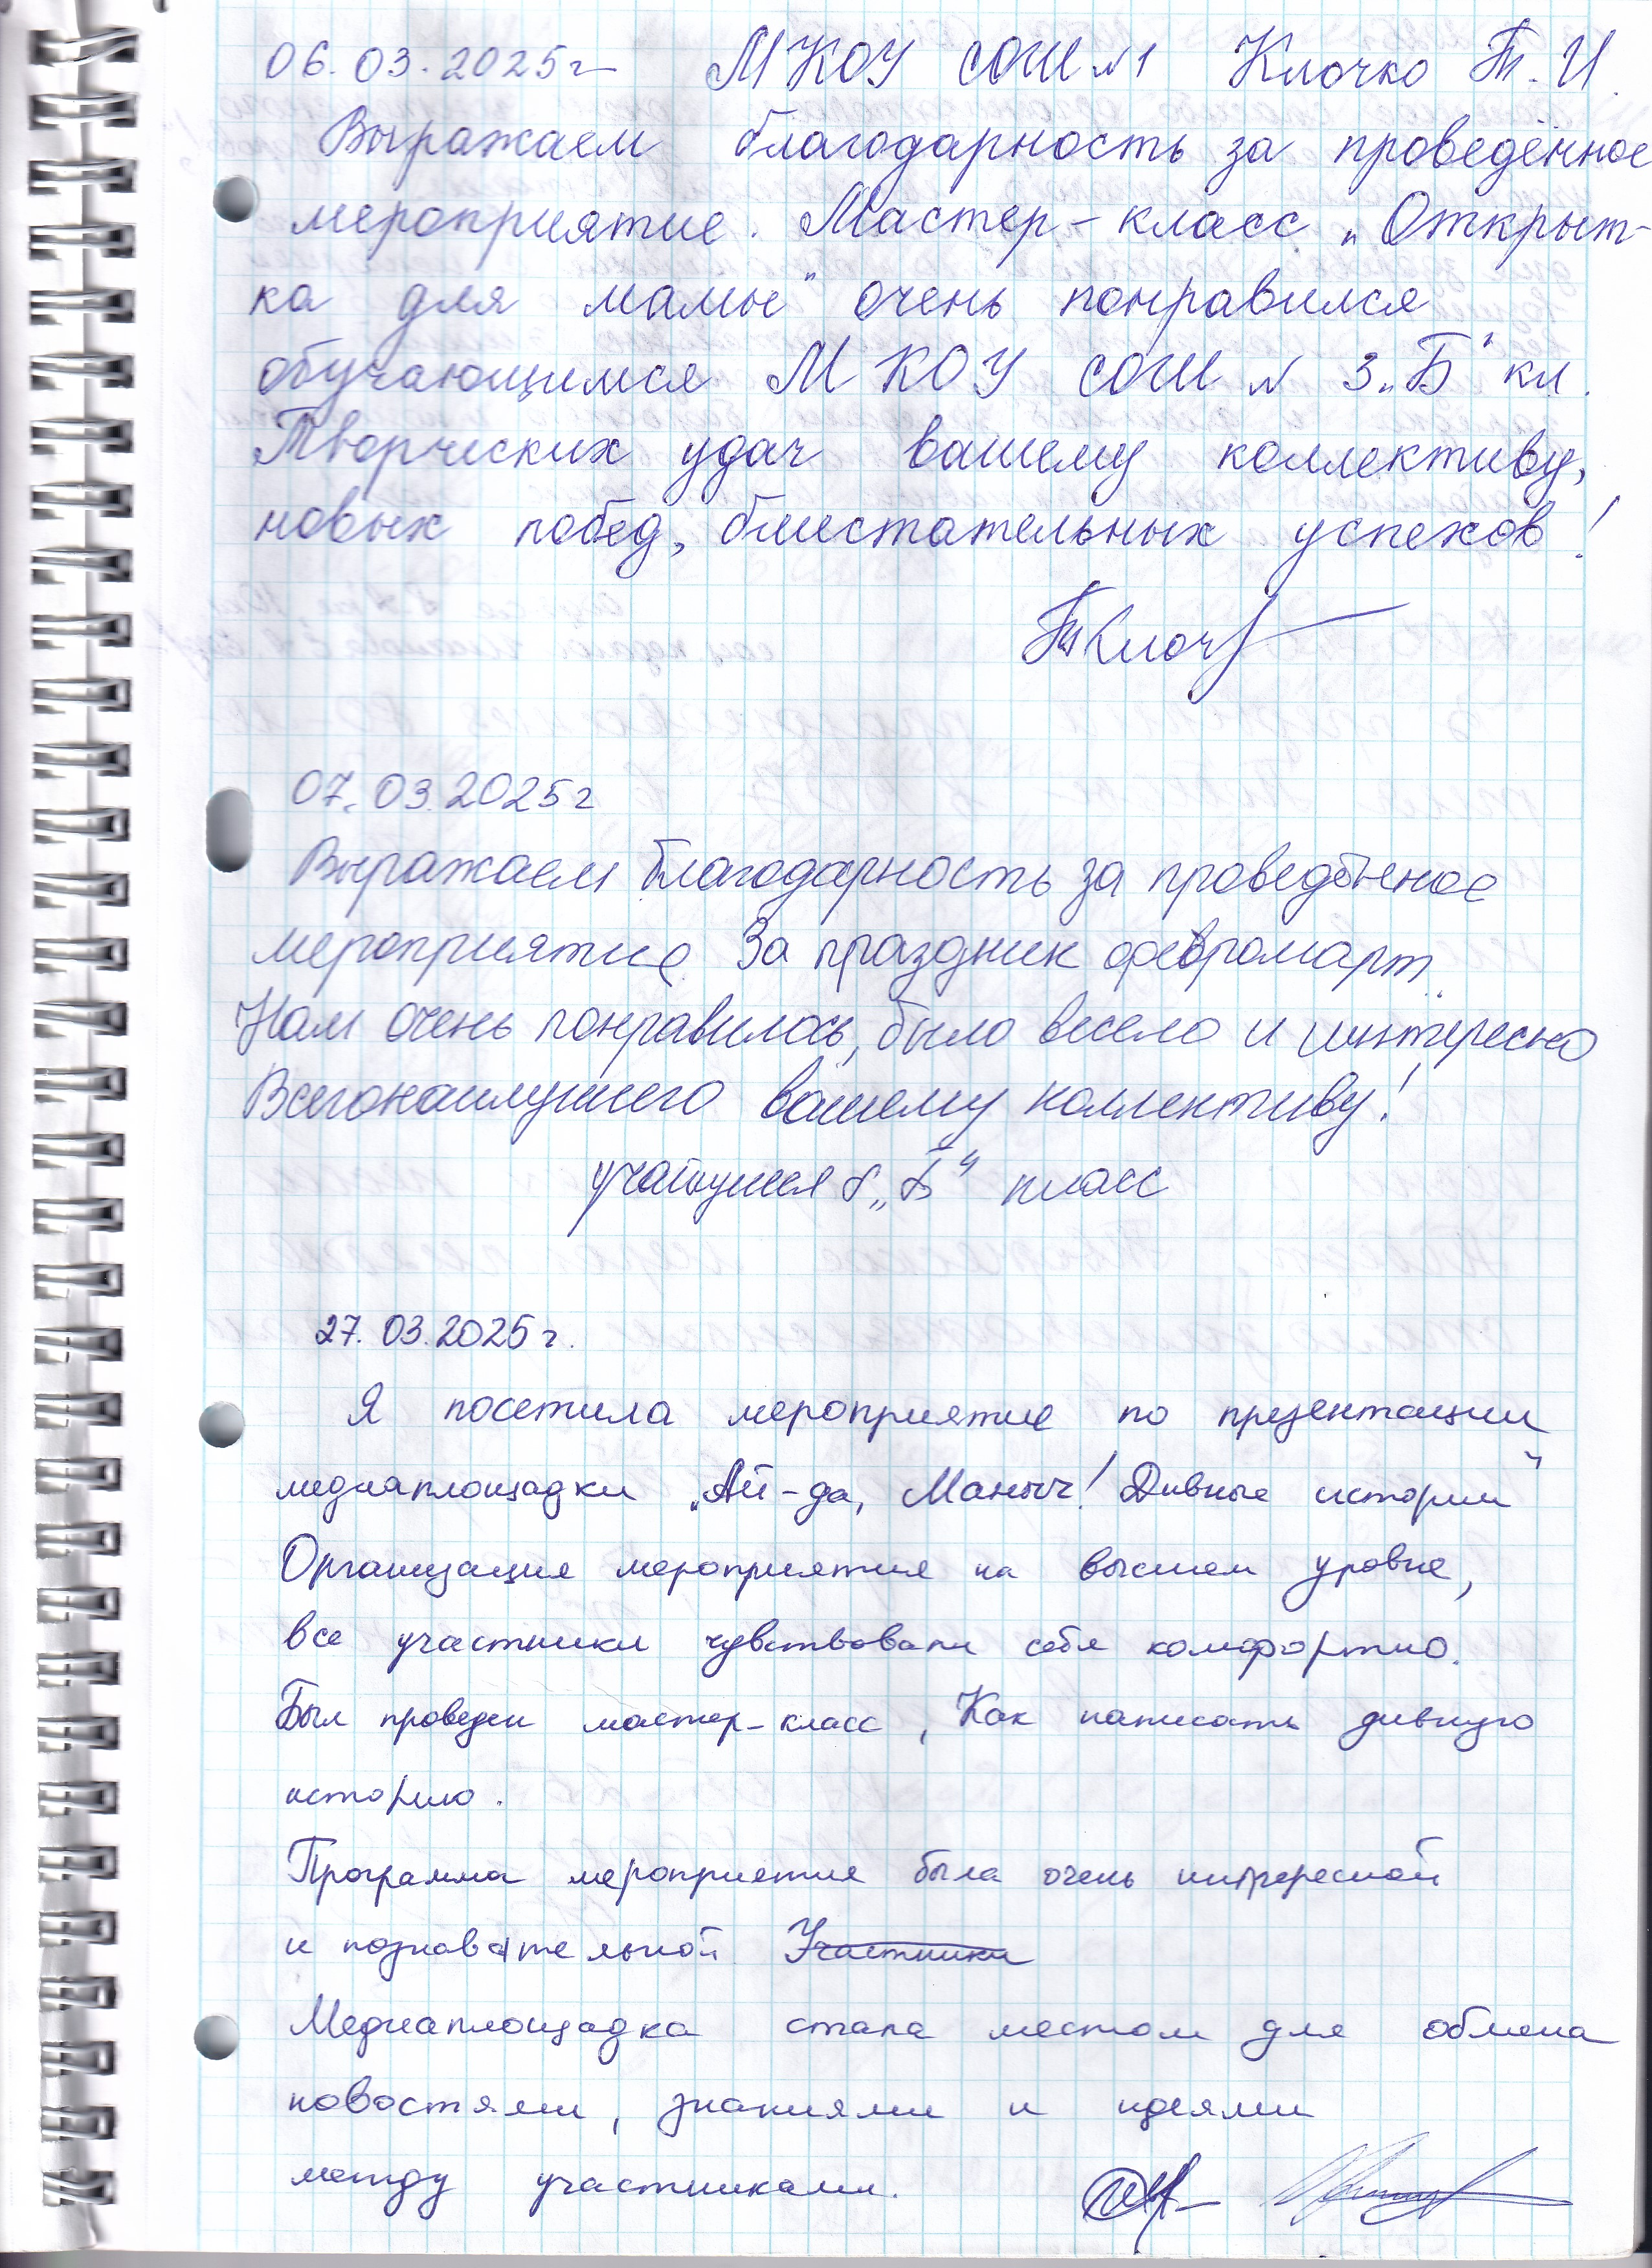 06.03.2025г МКОУ СОШ №1 Клочко Т.И.
Выражаем благодарность за проведённое
мероприятие. Мастер-класс „Открыт-
ка для мамы" очень понравился
обучающимся МКОУ СОШ № 3„Б" кл.
Творческих удач вашему коллективу,
новых побед, блистательных успехов!
07.03.2025г
Выражаем благодарность за проведённое
мероприятие За праздник февромарт.
Нам очень понравилось, было весело и интересно
Всегонаилучшего вашему коллективу!
учащиеся „Б" класс
27.03.2025г.
Я посетила мероприятие по презентации
медиаплощадки „Ай-да, Маныч! Дивные истории"
Организация мероприятия на высшем уровне,
все участники чувствовали себя комфортно.
Был проведен мастер-класс „Как написать дивную
историю.
Программа мероприятия была очень интересной
и познавательной Участники
Медиаплощадка стала местом для обмена
новостями, знаниями и идеями
между участниками.